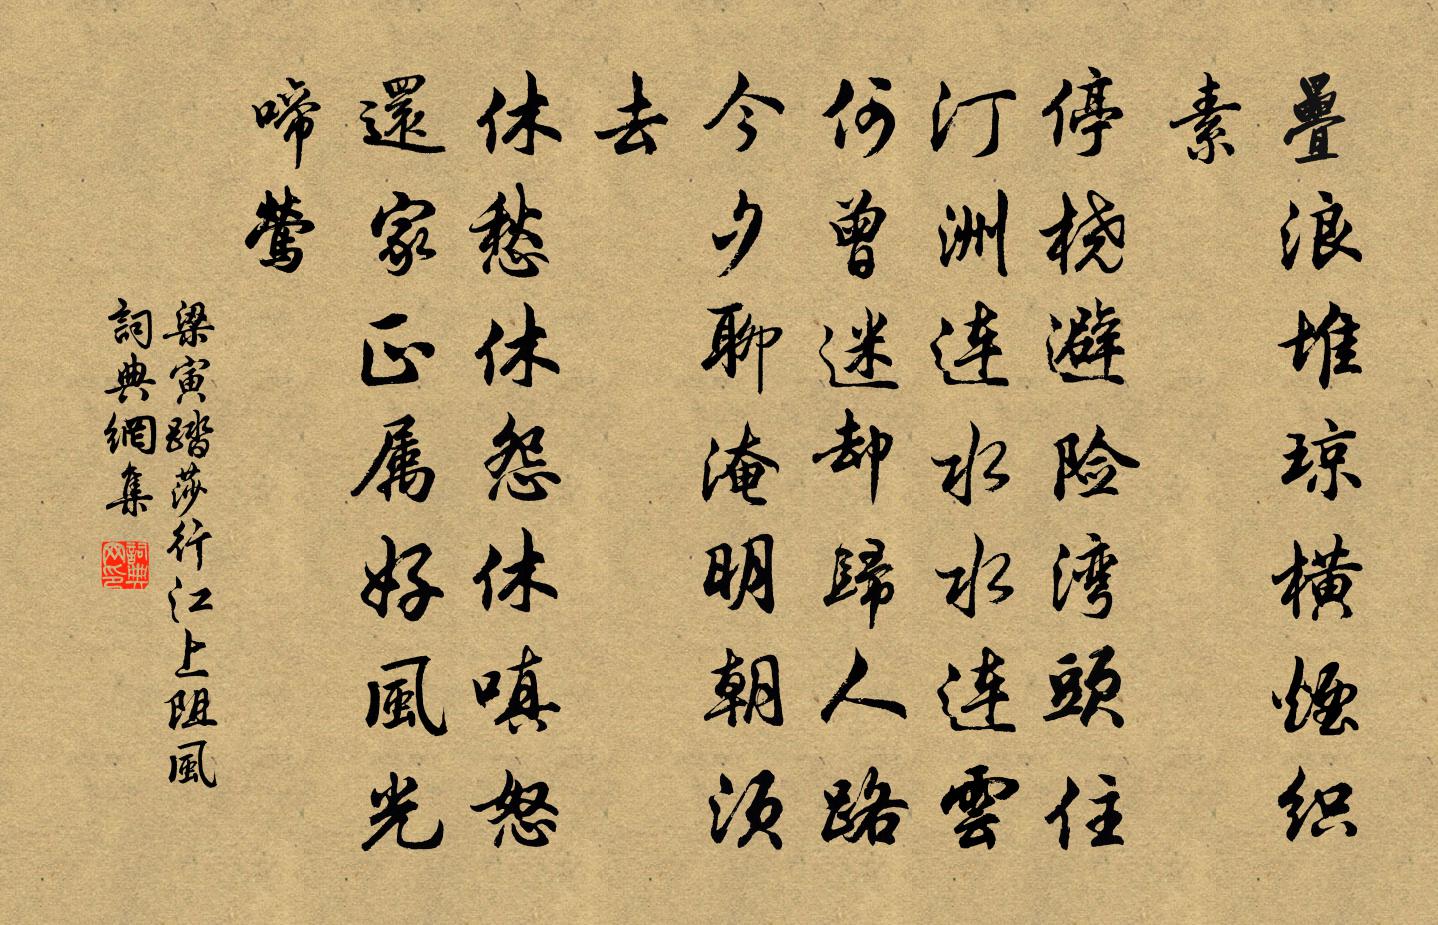 疊浪堆琼橫煙织
素
停桡避险湾頭住
汀洲连水水连雲
何曾迷却歸人路
今夕聊淹明朝须
去
休愁休怨休嗔怒
還家正属好風光
啼莺
梁寅踏莎行江上阻風
詞典網集
詞典網印